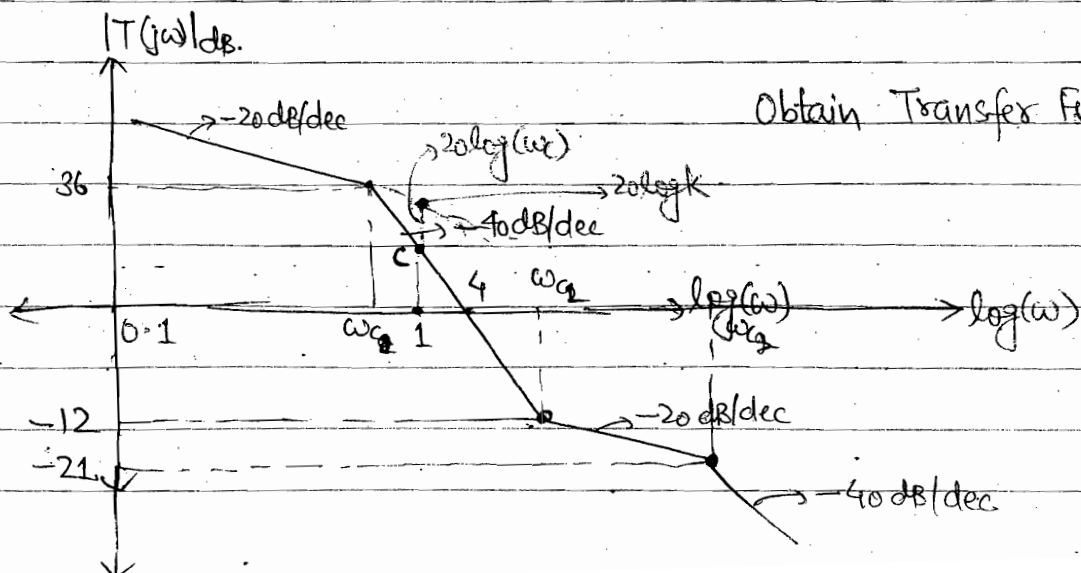 |T(jω)|dB.
Obtain Transfer
-20dB/dec
20log(ωc)
36
20logK
-40dB/dec
C
4
ωc2
log(ω)
log(ω)
0.1
ωc1
1
ωc3
-12
-20dB/dec
-21
-40dB/dec